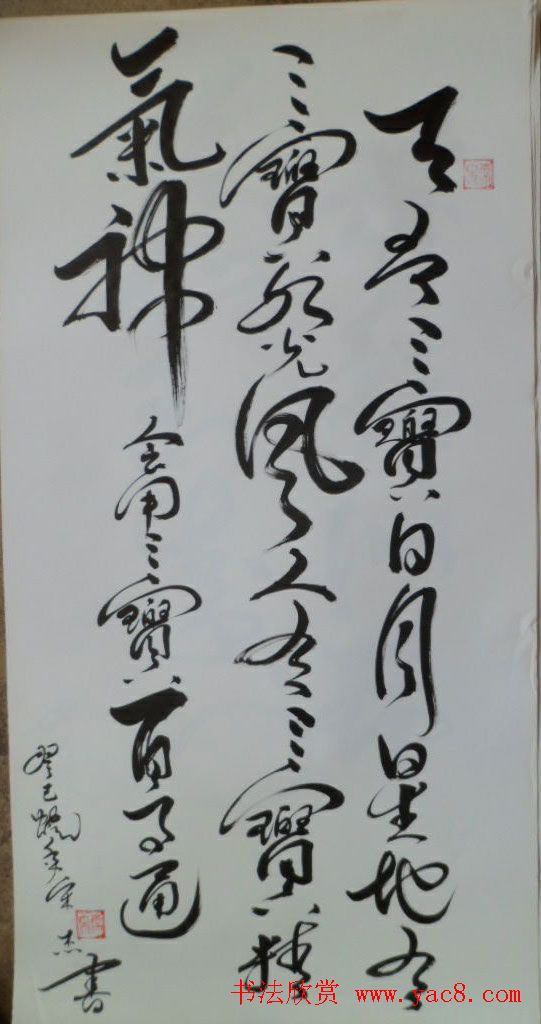 天有三寶日月星地有
三寶水火風人有三寶精
氣神
會用三寶百事通
癸巳年宋杰書
书法欣赏 www.yac8.com